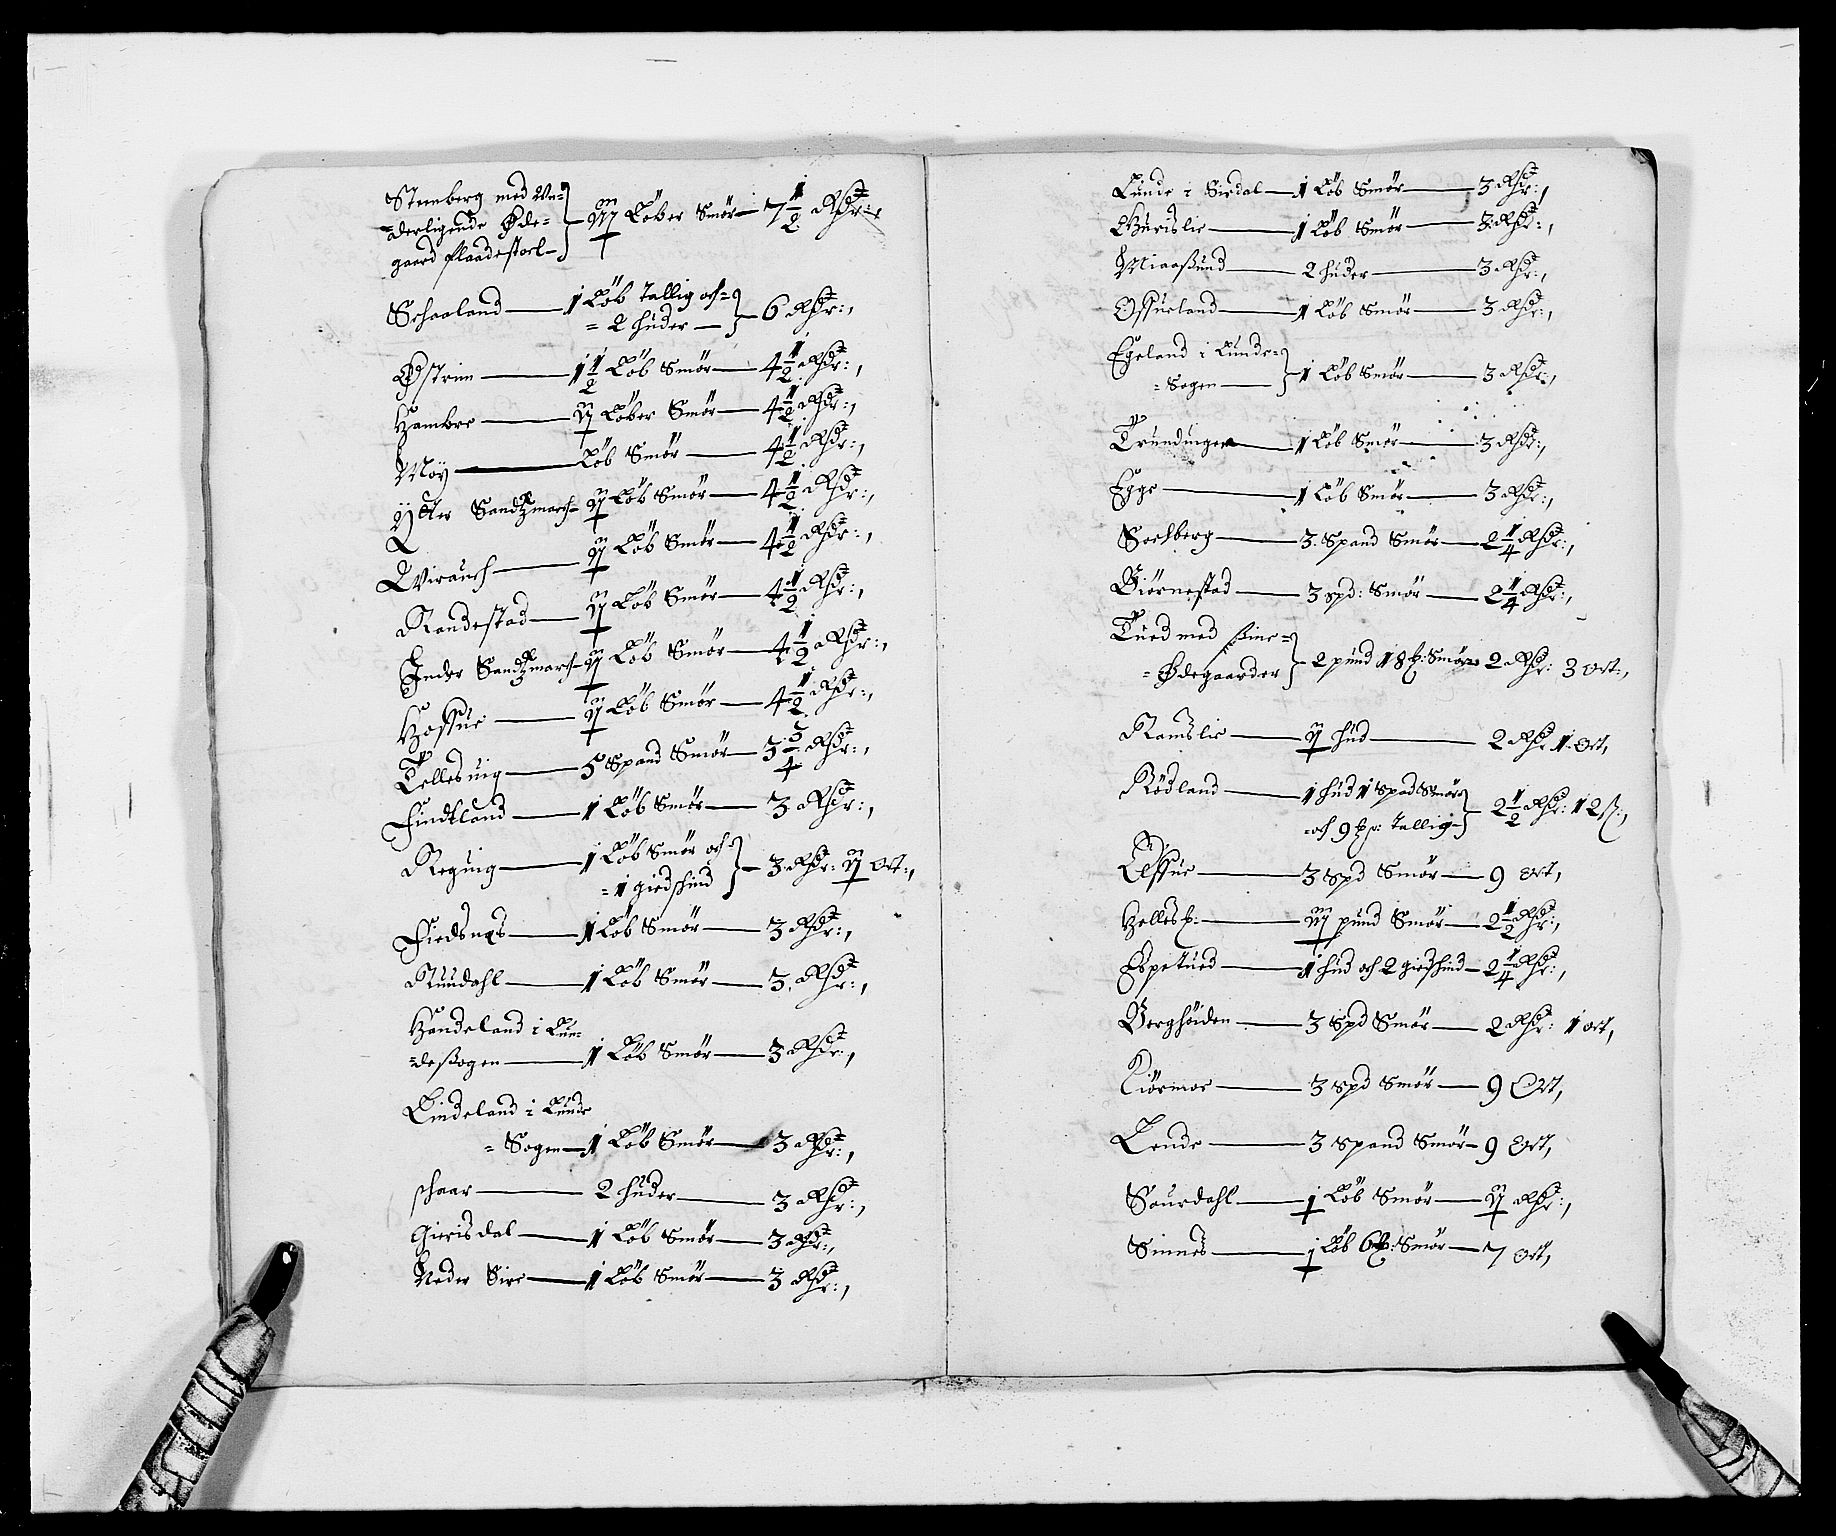 Stemberg med un=
=derligende Øde=
gaard flaadestoel – Løber Smør – 7 1/2 Rdr:,
Schaaland – 1 Løb Tallig och=
= 2 huder – 6 Rdr:,
Østrem – 1 1/2 Løb Smør – 4 1/2 Rdr:,
Hambre – Løber Smør – 4 1/2 Rdr:,
Moÿ – Løb Smør – 4 1/2 Rdr:,
Ytter Sandtzmarch – Løb Smør – 4 1/2 Rdr:,
Wirauch – Løb Smør – 4 1/2 Rdr:,
Randestad – Løb Smør – 4 1/2 Rdr:,
Inder Sandtzmarch – Løb Smør – 4 1/2 Rdr:,
Hossue – Løb Smør – 4 1/2 Rdr:,
Tellesuig – 5 Spand Smør – 3 3/4 Rdr:,
Findtland – 1 Løb Smør – 3 Rdr:,
Reguig – 1 Løb Smør och=
= 1 giedschind – 3 Rdr: ort:,
Fiedsnes – 1 Løb Smør – 3 Rdr:,
Ruudahl – 1 Løb Smør – 3 Rdr:,
Handeland i Lun=
=desogen – 1 Løb Smør – 3 Rdr:,
Lindeland i Lunde
= Sogen – 1 Løb Smør – 3 Rdr:,
schaar – 2 huder – 3 Rdr:,
Gierisdal – 1 Løb Smør – 3 Rdr:,
Neder Sire – 1 Løb Smør – 3 Rdr:,
Lunde i Sirdal – 1 Løb Smør – 3 Rdr:,
Guurislie – 1 Løb Smør – 3 Rdr:,
Miaaßund – 2 huder – 3 Rdr:,
Ossueland – 1 Løb Smør – 3 Rdr:,
Egeland i Lunde=
= Sogen – 1 Løb Smør – 3 Rdr:,
Trundingen – 1 Løb Smør – 3 Rdr:,
Egge – 1 Løb Smør – 3 Rdr:,
Soelberg – 3 Spand Smør – 2 1/4 Rdr:,
Biørnestad – 3 spd: Smør – 2 1/4 Rdr:,
Tued med ßine=
= Ødegaarder – 2 pund 18 Smør – 2 Rdr: 3 ort:,
Ramslie – hud – 2 Rdr 1 Ort,
Rødland – 1 hud 1 Spad Smør
=och 9 Tallig – 2 1/2 Rdr: 12 ß:,
Ossue – 3 spd Smør – 9 ort,
Helles – pund Smør – 2 1/2 Rdr:,
Espetued – 1 hud och 2 giedschind – 2 1/4 Rdr:,
Berghøiden – 3 Spd Smør – 2 Rdr: 1 ort,
Kiørmoe – 3 spd Smør – 9 Ort,
Lende – 3 Spand Smør – 9 Ort,
Saurdahl – Løb Smør – Rdr:,
Sinnes – Løb 6 : Smør – 7 Ort,